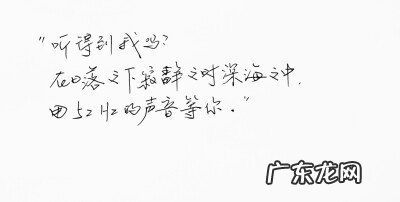 “听得到我吗？
在日落之下寂静之时深海之中.
用52Hz的声音等你。”
广东龙网